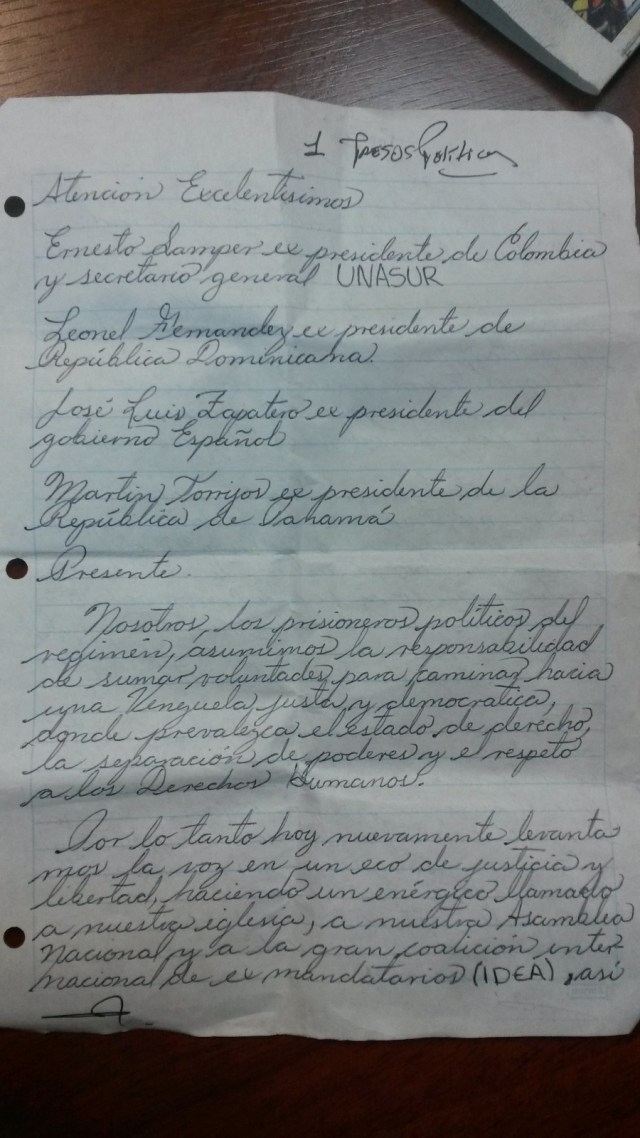 1 Presos Políticos
Atención Excelentisimos
Ernesto Samper ex presidente de Colombia
y secretario general UNASUR
Leonel Fernandez ex presidente de
República Dominicana.
José Luis Zapatero ex presidente del
gobierno Español
Martin Torrijos ex presidente de la
República de Panamá
Presente.
Nosotros, los prisioneros políticos del
regimen, asumimos la responsabilidad
de sumar voluntades para caminar hacia
una Venezuela justa y democratica,
donde prevalezca el estado de derecho,
la separación de poderes y el respeto
a los Derechos Humanos.
Por lo tanto hoy nuevamente levanta
mos la voz en un eco de justicia y
libertad, haciendo un enérgico llamado
a nuestra iglesia, a nuestra Asamblea
Nacional y a la gran coalición inter-
nacional de ex mandatarios (IDEA), así